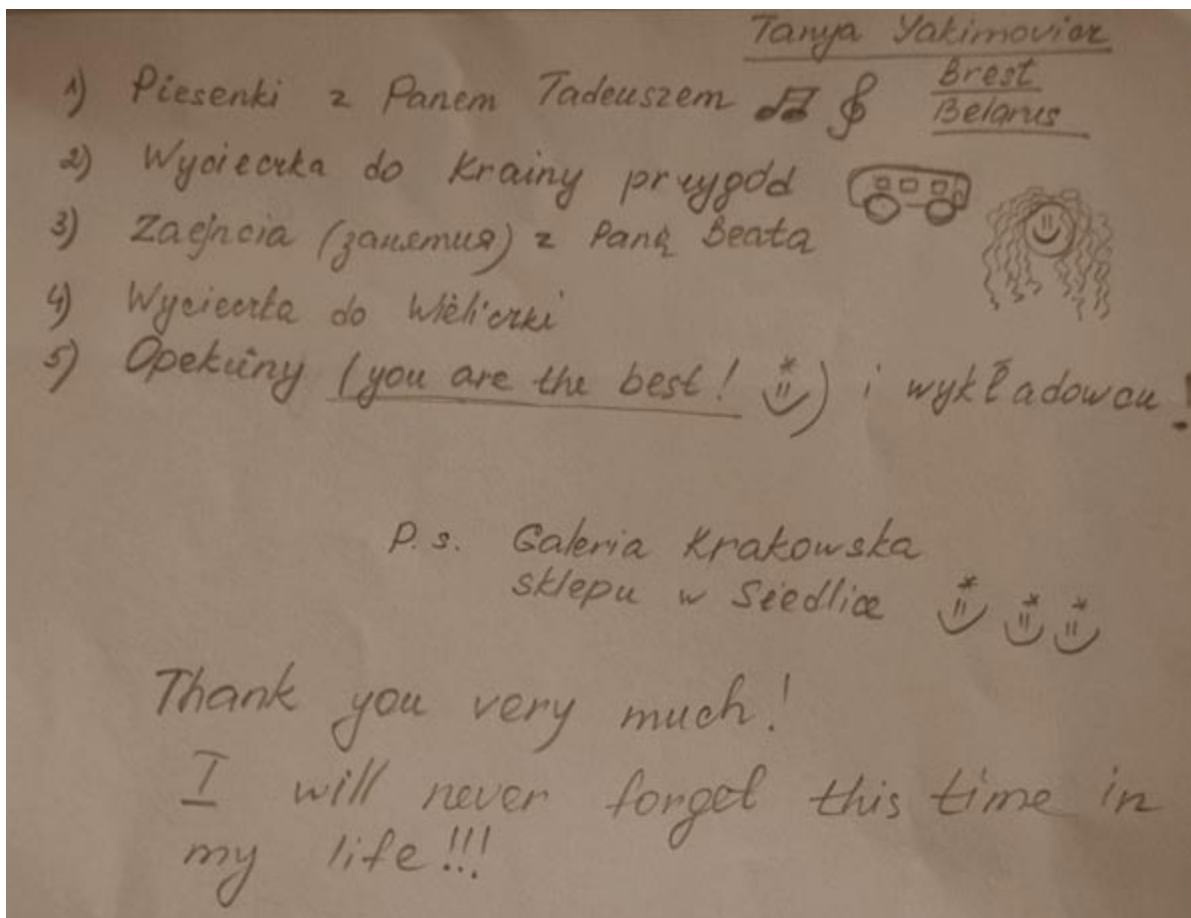 Tanya Yakimovicz
Brest
Belarus
1) Piesenki z Panem Tadeuszem
2) Wycieczka do Krainy przygód
3) Zaejncia (занятия) z Panią Beata
4) Wycieczka do Wieliczki
5) Opekuny (you are the best!) i wykładowcu!
P.s. Galeria Krakowska
sklepu w Siedlice
Thank you very much!
I will never forget this time in
my life!!!